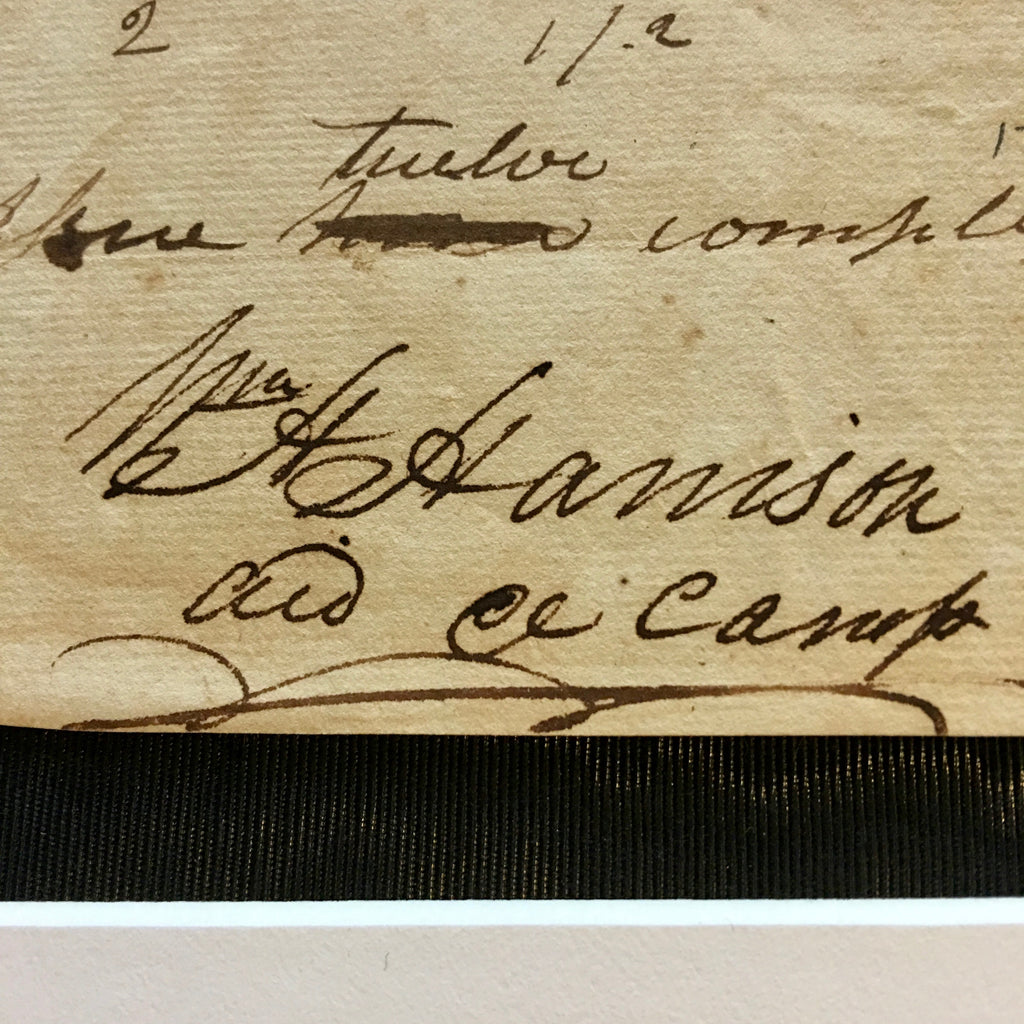 2 11.2
twelve
Issue compl
Wm H Harrison
aid de Camp